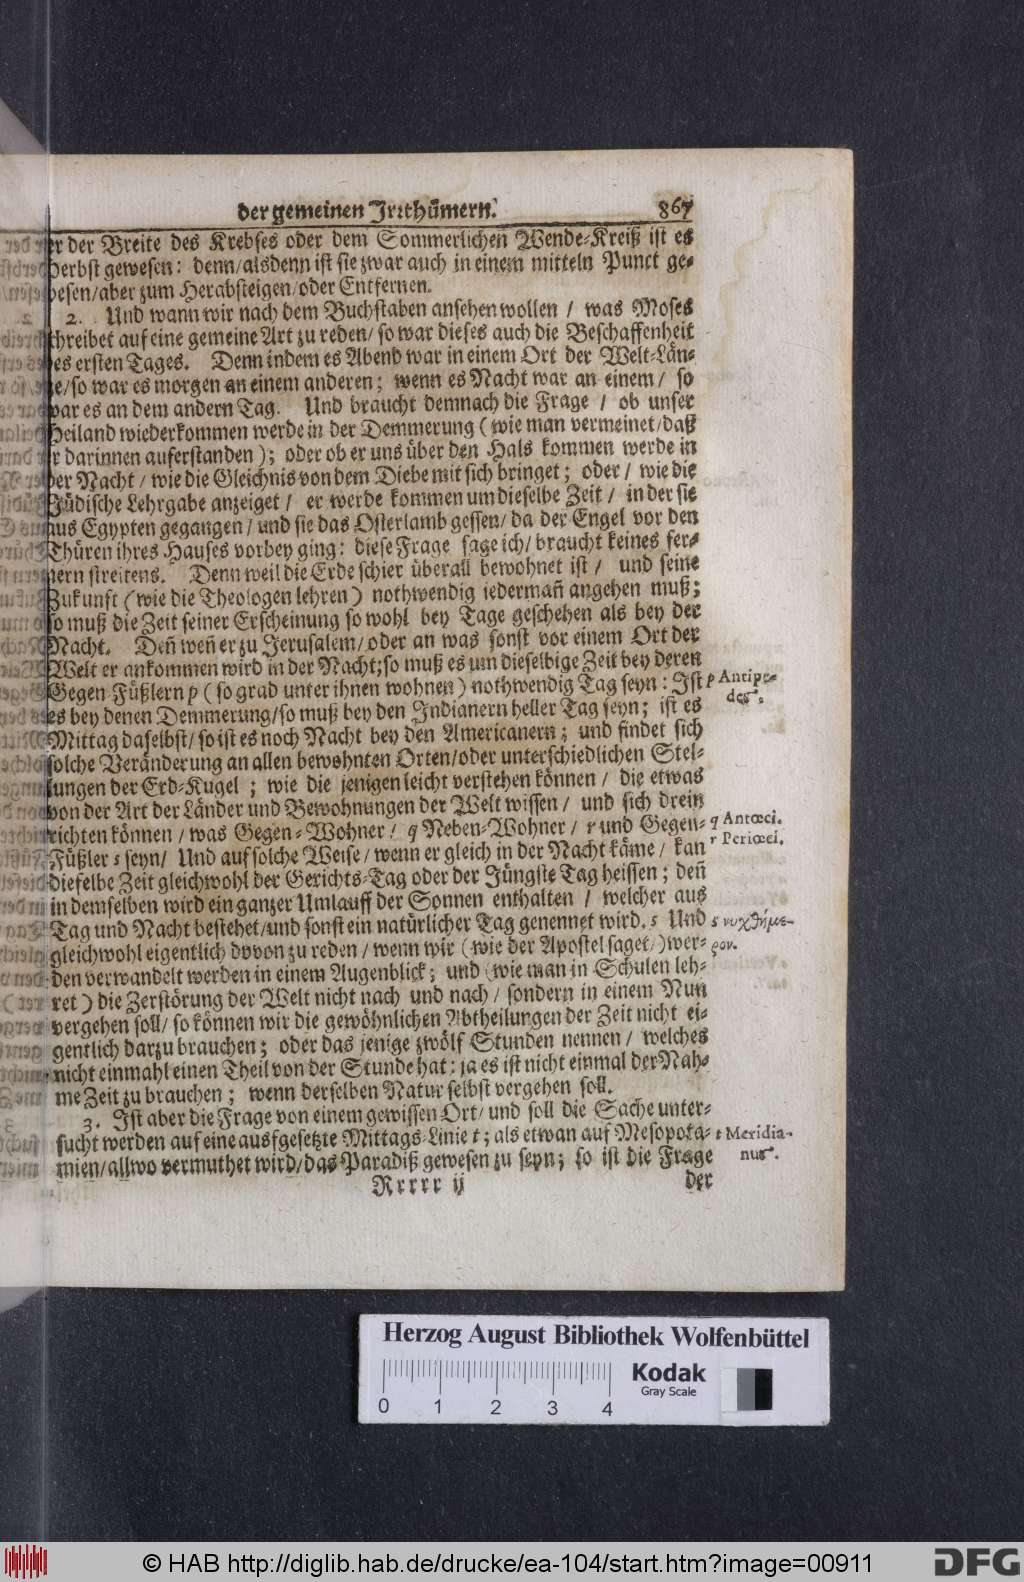 der gemeinen Irrthümern. 867
er der Breite des Krebses oder dem Sommerlichen Wende-Kreiß ist es
Herbst gewesen: denn/alsdenn ist sie zwar auch in einem mitteln Punct ge-
wesen/aber zum Herabsteigen/oder Entfernen.
2. Und wann wir nach dem Buchstaben ansehen wollen / was Moses
schreibet auf eine gemeine Art zu reden/ so war dieses auch die Beschaffenheit
des ersten Tages. Denn indem es Abend war in einem Ort der Welt-Län-
ge/so war es morgen an einem anderen; wenn es Nacht war an einem/ so
war es an dem andern Tag. Und braucht demnach die Frage / ob unser
Heiland wiederkommen werde in der Demmerung (wie man vermeinet/daß
er darinnen auferstanden); oder ob er uns über den Hals kommen werde in
der Nacht/ wie die Gleichnis von dem Diebe mit sich bringet; oder/ wie die
Jüdische Lehrgabe anzeiget/ er werde kommen um dieselbe Zeit/ in der sie
aus Egypten gegangen/ und sie das Osterlamb gessen/ da der Engel vor den
Thüren ihres Hauses vorbey ging: diese Frage sage ich/ braucht keines fer-
nern streitens. Denn weil die Erde schier überall bewohnet ist/ und seine
Zukunft (wie die Theologen lehren) nothwendig iedermañ angehen muß;
so muß die Zeit seiner Erscheinung so wohl bey Tage geschehen als bey der
Nacht. Deñ weñ er zu Jerusalem/oder an was sonst vor einem Ort der
Welt er ankommen wird in der Nacht;so muß es um dieselbige Zeit bey deren
Gegen-Füßlern p (so grad unter ihnen wohnen) nothwendig Tag seyn: Ist
p Antipo-
des.
es bey denen Demmerung/so muß bey den Indianern heller Tag seyn; ist es
Mittag daselbst/ so ist es noch Nacht bey den Americanern; und findet sich
solche Veränderung an allen bewohnten Orten/oder unterschiedlichen Stel-
lungen der Erd-Kugel; wie die jenigen leicht verstehen können/ die etwas
von der Art der Länder und Bewohnungen der Welt wissen/ und sich drein
richten können/ was Gegen-Wohner/ q Neben-Wohner/ r und Gegen-
q Antœci.
r Periœci.
Füßler s seyn/ Und auf solche Weise/ wenn er gleich in der Nacht käme/ kan
dieselbe Zeit gleichwohl der Gerichts-Tag oder der Jüngste Tag heissen; deñ
in demselben wird ein ganzer Umlauff der Sonnen enthalten/ welcher aus
Tag und Nacht bestehet/und sonst ein natürlicher Tag genennet wird. s Und
s νυχθήμε-
ρον.
gleichwohl eigentlich dvvon zu reden/ wenn wir (wie der Apostel saget/)wer-
den verwandelt werden in einem Augenblick; und (wie man in Schulen leh-
ret) die Zerstörung der Welt nicht nach und nach/ sondern in einem Nun
vergehen soll/ so können wir die gewöhnlichen Abtheilungen der Zeit nicht ei-
gentlich darzu brauchen; oder das jenige zwölf Stunden nennen/ welches
nicht einmahl einen Theil von der Stunde hat: ja es ist nicht einmal der Nah-
me Zeit zu brauchen; wenn derselben Natur selbst vergehen soll.
3. Ist aber die Frage von einem gewissen Ort/ und soll die Sache unter-
sucht werden auf eine ausfgesetzte Mittags-Linie t; als etwan auf Mesopota-
t Meridia-
nus.
mien/allwo vermuthet wird/das Paradiß gewesen zu seyn; so ist die Frage
Rrrrr ij der
Herzog August Bibliothek Wolfenbüttel
Kodak
Gray Scale
0 1 2 3 4
© HAB http://diglib.hab.de/drucke/ea-104/start.htm?image=00911
DFG